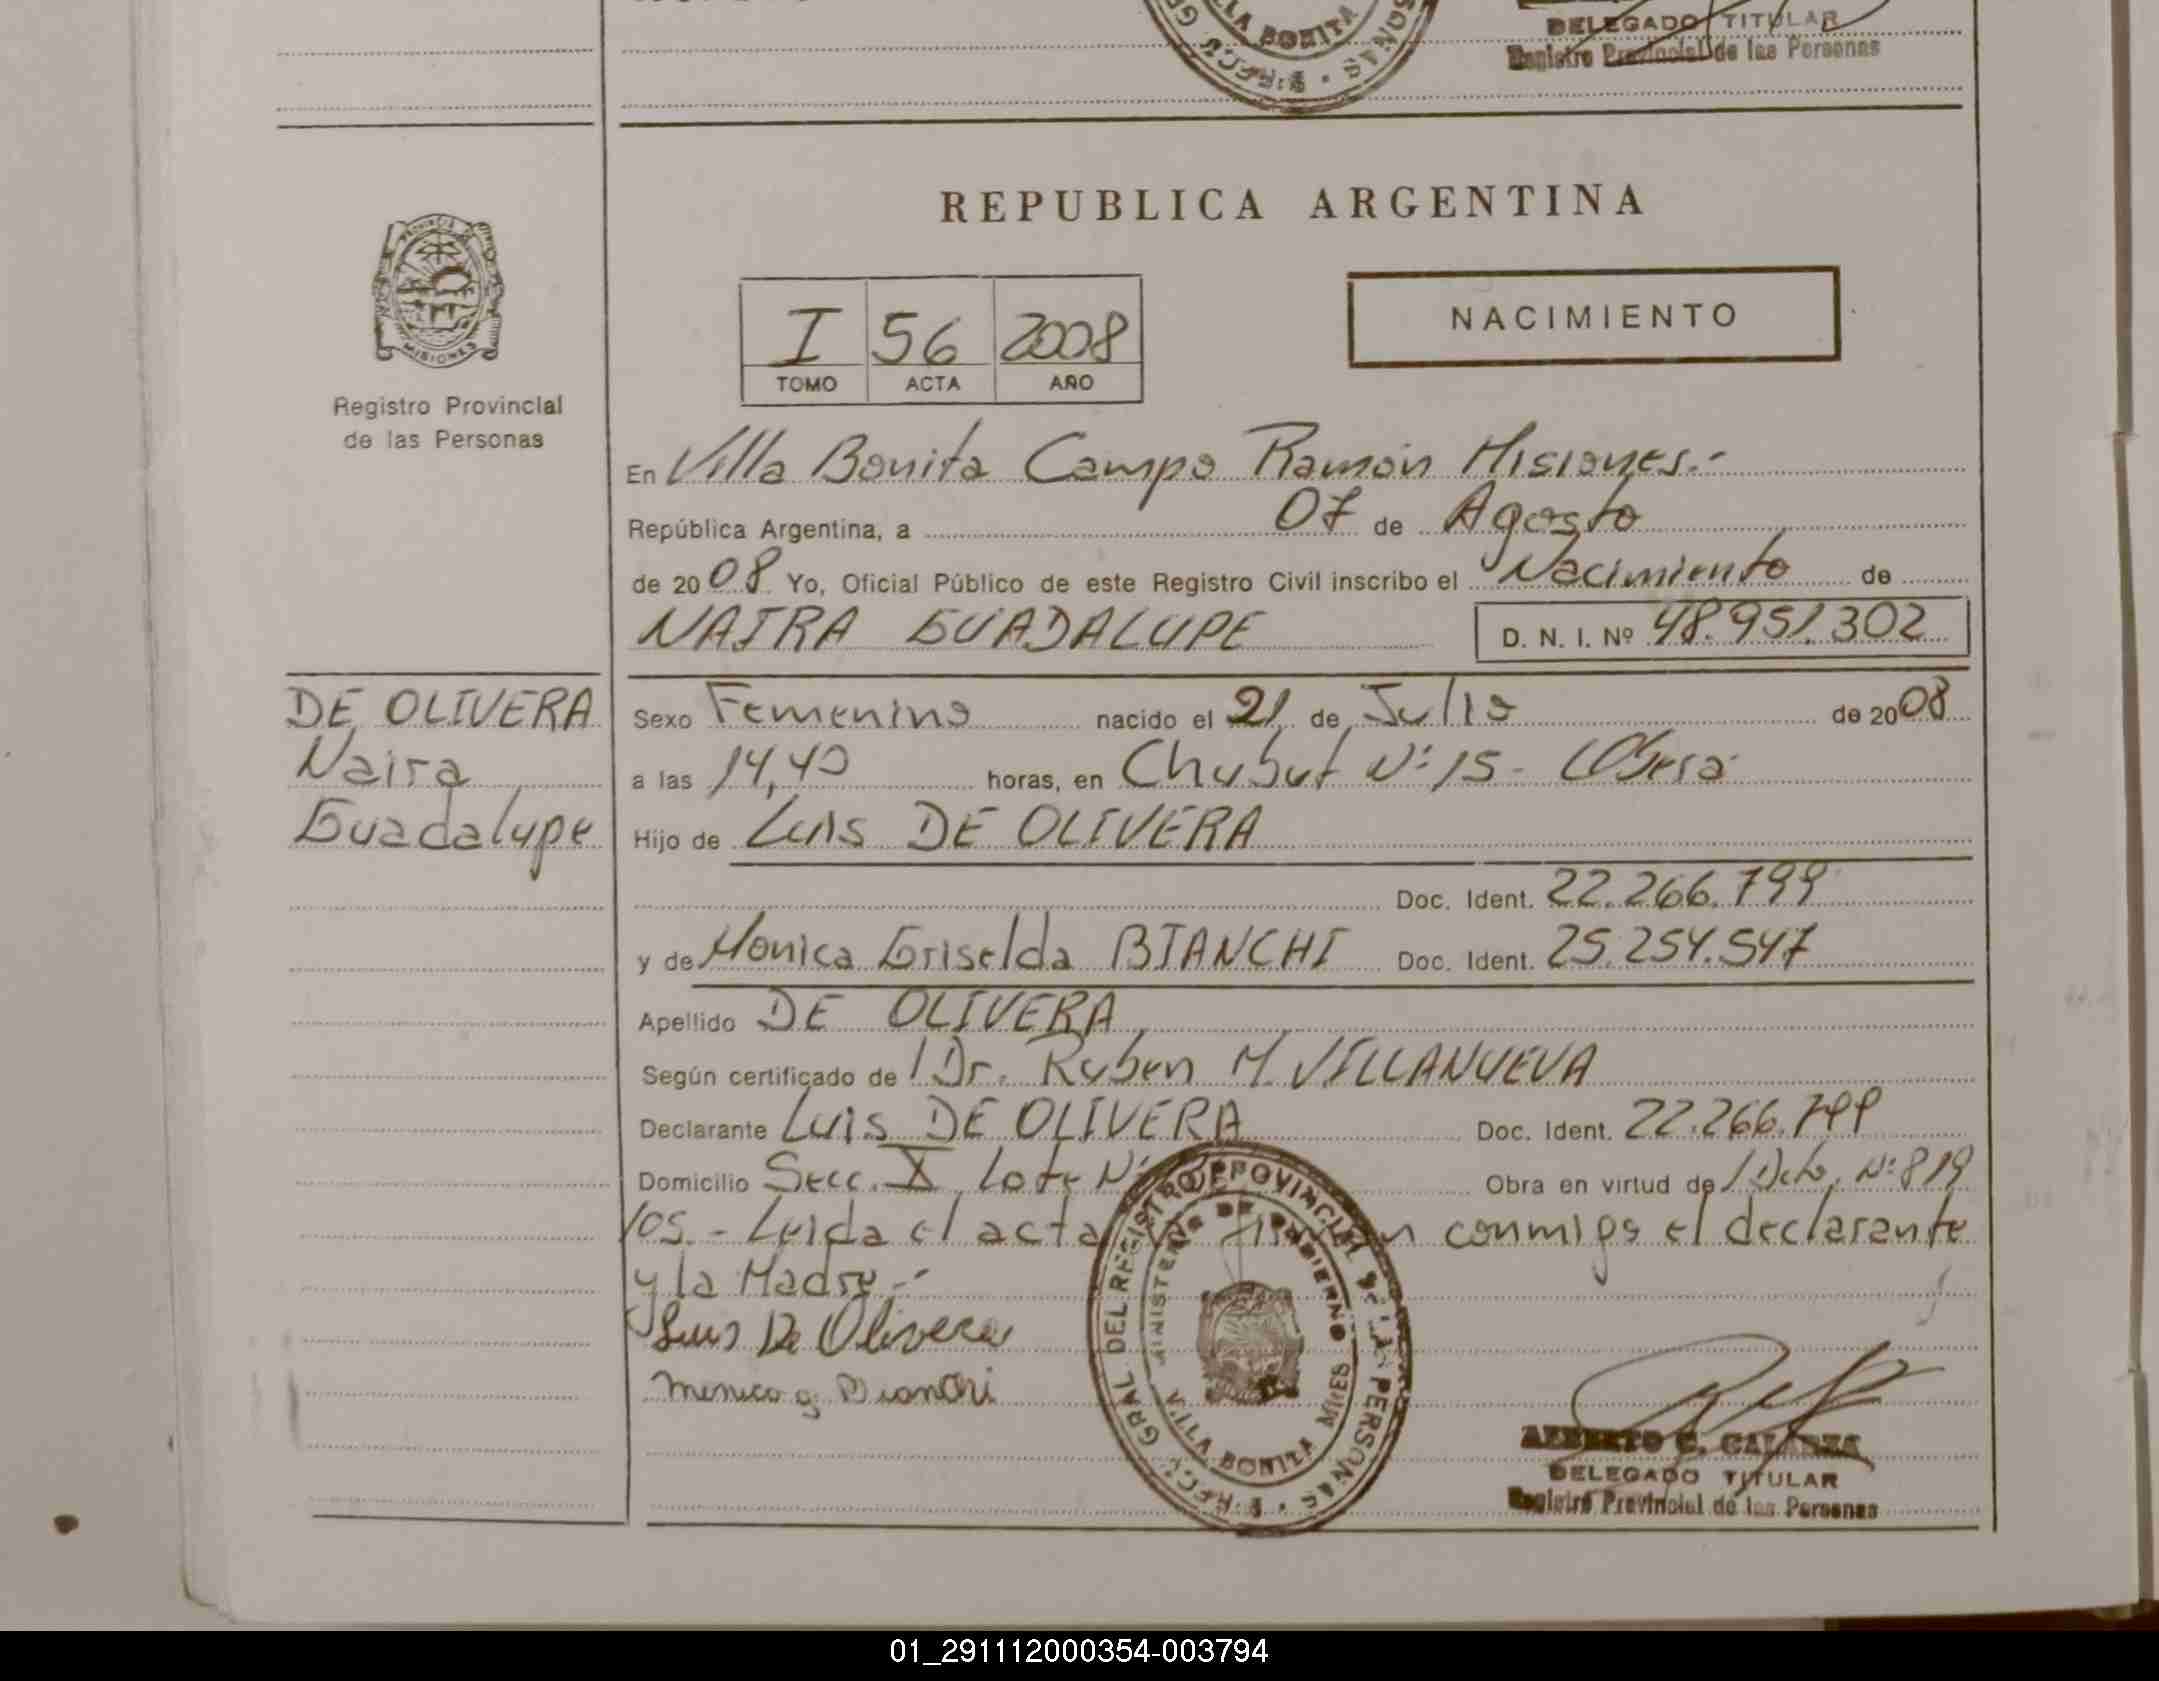 LA BONITA
DELEGADO TITULAR
Registro Provincial de las Personas
REPUBLICA ARGENTINA
PROVINCIA DE MISIONES
I 56 2008
TOMO ACTA AÑO
NACIMIENTO
Registro Provincial
de las Personas
En Villa Bonita Campo Ramón Misiones.-
República Argentina, a 07 de Agosto
de 2008 Yo, Oficial Público de este Registro Civil inscribo el Nacimiento de
NAIRA GUADALUPE D. N. I. Nº 48.951.302
DE OLIVERA
Naira
Guadalupe
Sexo Femenino nacido el 21 de Julio de 2008
a las 14,40 horas, en Chubut Nº 15 - Oberá
Hijo de Luis DE OLIVERA
Doc. Ident. 22.266.799
y de Monica Griselda BIANCHI Doc. Ident. 25.254.547
Apellido DE OLIVERA
Según certificado de / Dr. Ruben M. VILLANUEVA
Declarante Luis DE OLIVERA Doc. Ident. 22.266.799
Domicilio Secc. X Lote Nº Obra en virtud de / Dcto. Nº 819
/05.- Leida el acta conmigo el declarante
y la Madre.-
Luis De Olivera
Monica G Bianchi
GRAL DEL REGISTRO PROVINCIAL DE LAS PERSONAS
MINISTERIO DE GOBIERNO
VILLA BONITA MNES
ALBERTO C. GALARZA
DELEGADO TITULAR
Registro Provincial de las Personas
01_291112000354-003794